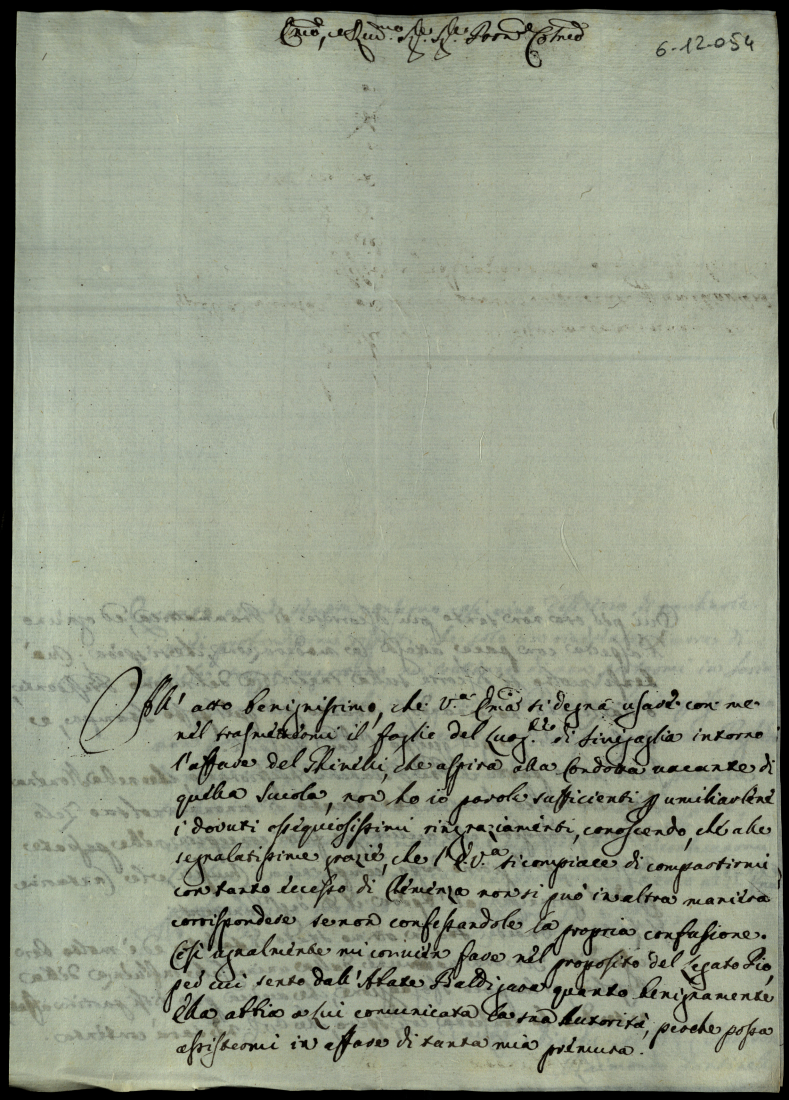 Emo, e Rmo Sre. Sre. Pron. Colmo
6-12-054
All' atto benignissimo, che V.ra Em.a si degna usare con me
nel trasmettermi il foglio del Luog.te di Sinigaglia intorno
l'affare del Pinelli, che aspira alla Condotta vacante di
quella Scuola, non ho io parole sufficienti p umiliarlene
i dovuti ossequiosissimi ringraziamenti, conoscendo, che alle
segnalatissime grazie, che l'E.V.a si compiace di compartirmi
con tanto eccesso di Clemenza non si può in altra maniera
corrispondere se non confessandole la propria confusione.
Così ugualmente mi convien fare nel proposito del Legato Pio,
per cui sento dall'Abate Baldigara quanto benignamente
ella abbia a Lui comunicata la sua Autorità, perche possa
assistermi in affare di tanta mia premura.